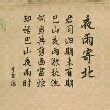 夜雨寄北
君問歸期未有期
巴山夜雨漲秋池
何當共剪西窗燭
却話巴山夜雨時